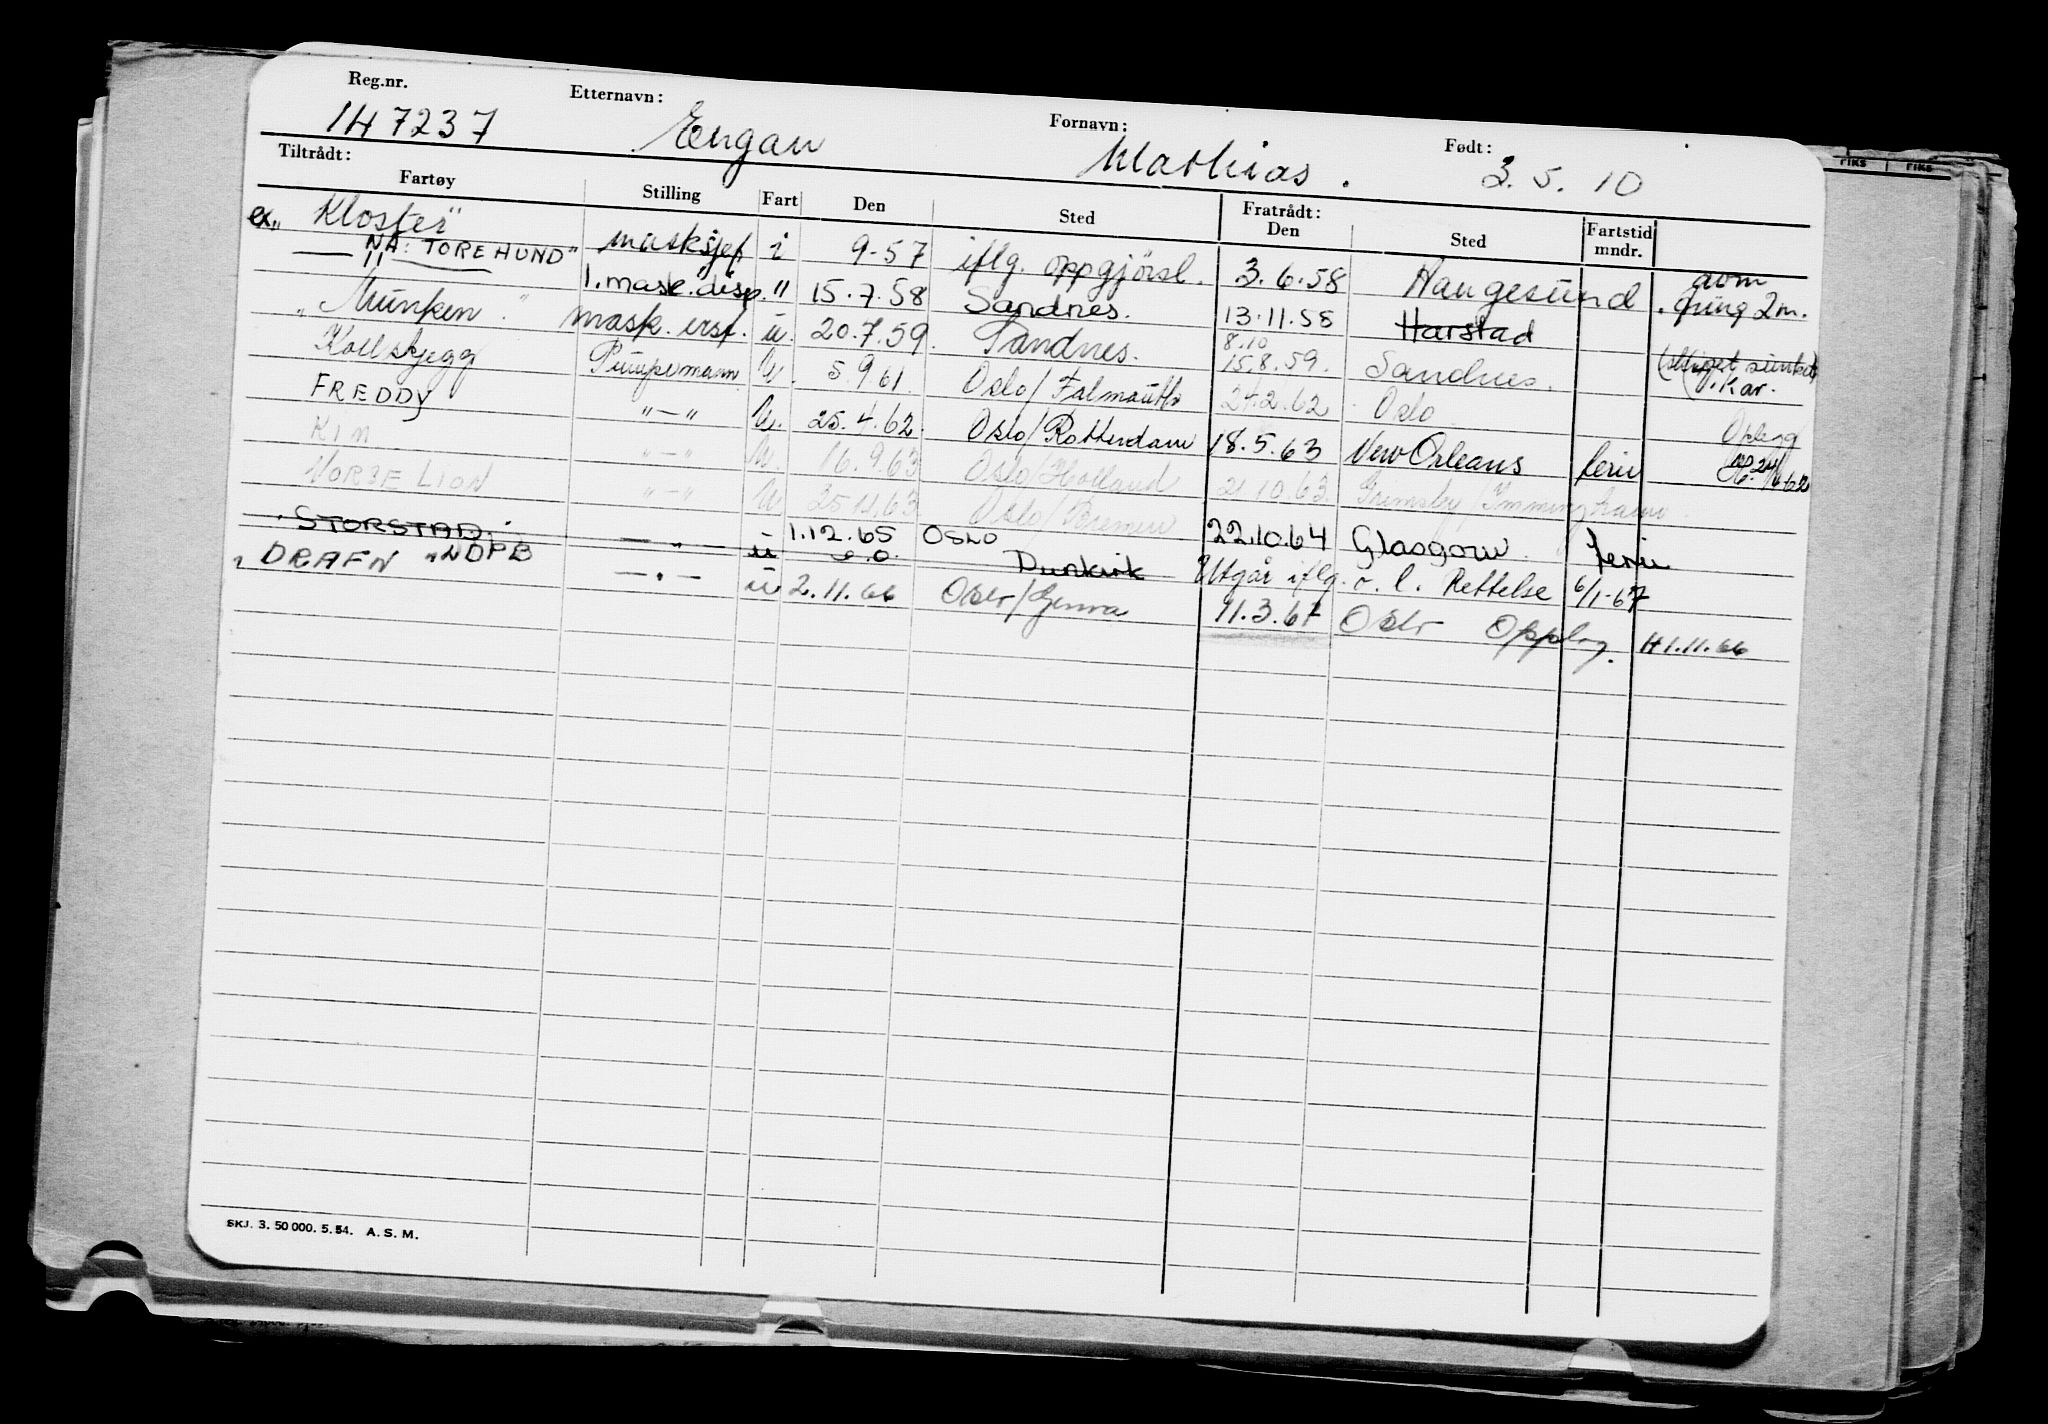 Reg.nr. Etternavn: Fornavn: Født:
147237 Engan Mathias. 3.5.10
Tiltrådt: Fratrådt:
Fartøy Stilling Fart Den Sted Den Sted Fartstid mndr.
ex „Kloster" masksjef i 9-57 iflg. oppgjörsl. 3.6.58 Haugesund
NÅ: TORE HUND" 1. mask. disp. " 15.7.58 Sandnes. 13.11.58 Harstad . 2m.
„Munken". mask. u. 20.7.59 Sandnes. 8.10 15.8.59. Sandnes.
Kollskjegg Pumpemann U. 5.9.61. Oslo/Falmouth 24.2.62 Oslo
FREDDY "—" U. 25.4.62. Oslo/Rotterdam 18.5.63 New Orleans ferie
KIM "—" U. 16.9.63 Oslo/Holland 21.10.63. Grimsby/Immingham.
NORSE LION "—" U 25.11.63 Oslo/Bremen 22.10.64 Glasgow. ferie
"STORSTAD." — " u 1.12.65 OSLO Dunkirk Utgår iflg. o. l. Rettelse 6/1-67
„DRAFN" NDPB —"— u 2.11.66 Oslo/Genva 11.3.67 Oslo Opplag. 1.11.66
SKJ. 3. 50 000. 5. 54. A. S. M.
FIKS FIKS